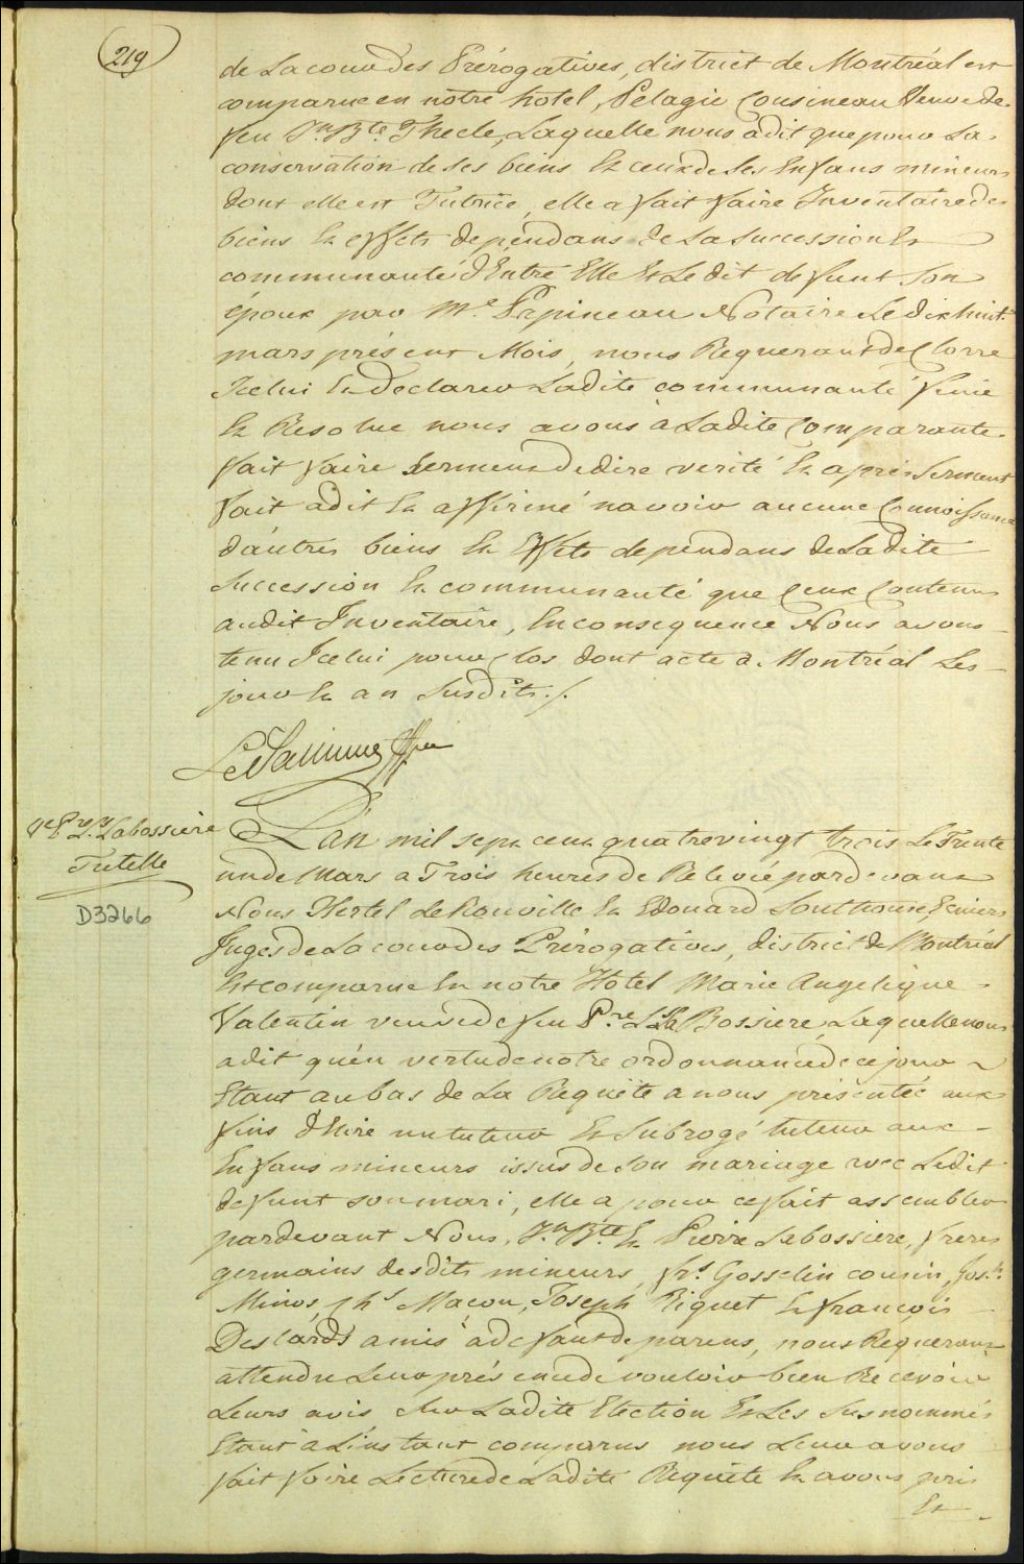 219
de La cour des Prérogatives, district de Montréal est
comparue en notre hotel, Pelagie Cousineau Veuve de
feu Jn. Bte. Thecle, Laquelle nous a dit que pour La
conservation de ses biens Et ceux de Ses Enfans mineurs
dont elle est Tutrice, elle a fait faire Inventaire des
biens Et effets dependans de La Succession Et
communauté d'Entre Elle Et Le dit defunt Son
époux par Me. Papineau Notaire Le dix huit
mars présent Mois, nous Requerant de Clorre
Icelui Et Declarer Ladite communauté finie
Et Resolue nous avons à Ladite Comparante
fait faire Serment de dire verité Et aprés Serment
fait a dit Et affirmé n'avoir aucune Connoissance
d'autres biens Et Effets dependans de Ladite
Succession Et communauté que Ceux Contenus
audit Inventaire, En consequence Nous avons
tenu Icelui pour Clos dont acte à Montréal Les
jour Et an Susdits ./.
Ve. Pre. Ls. Labossiere
Tutelle
D3266
L'an mil sept cent quatrevingt trois Le Trente
un de Mars a Trois heures de Relevée pardevant
Nous Hertel De Rouville Et Edouard Southouse Ecuiers
Juges de La cour des Prérogatives, district de Montréal
Est comparue En notre Hotel Marie Angelique
Valentin veuve de feu Pre. Ls. La Bossiere, Laquelle nous
a dit qu'en vertu de notre ordonnance de ce jour
Etant au bas de La Requête a nous présentée aux
fins d'Elire un tuteur Et Subrogé tuteur aux
Enfans mineurs issus de Son mariage avec Ledit
defunt son mari, elle a pour ce fait assembler
pardevant Nous, Jn. Bte. Et Pierre Labossiere, freres
germains desdits mineurs, frs. Gosselin cousin, Jos.h
Minos, Chs. Macou, Joseph Riquet Et françois
Deslards amis à defaut de parens, nous Requerant
attendu Leur présence de vouloir bien Recevoir
Leurs avis Sur Ladite Election Et Les Susnommés
Etant à L'instant comparus nous Leur avons
fait faire Lecture de Ladite Requête Et avons pris
Et